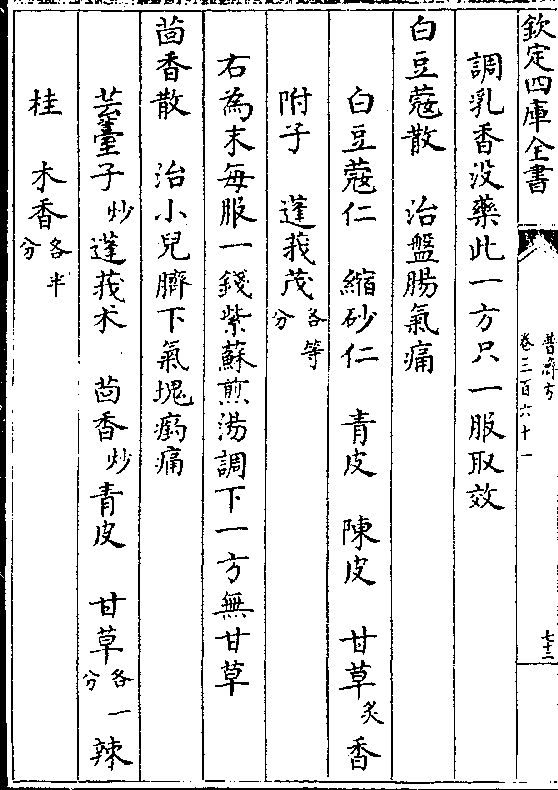 欽定四庫全書
普濟方
卷三百六十一
七十三
調乳香没藥此一方只一服取效
白豆蔻散　治盤腸氣痛
白豆蔻仁　縮砂仁　青皮　陳皮　甘草炙　香
附子　蓬莪茂各等分
右為末每服一錢紫蘇煎湯調下一方無甘草
茴香散　治小兒臍下氣塊㽱痛
芸薹子炒　蓬莪朮　茴香炒　青皮　甘草各一分　辣
桂　木香各半分